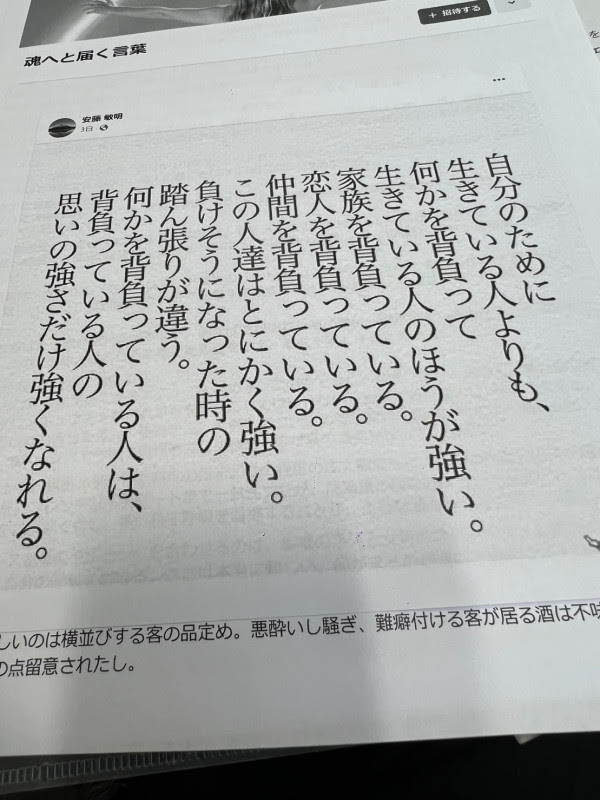 + 招待する
魂へと届く言葉
安藤 敏明
3日
自分のために
生きている人よりも、
何かを背負って
生きている人のほうが強い。
家族を背負っている。
恋人を背負っている。
仲間を背負っている。
この人達はとにかく強い。
負けそうになった時の
踏ん張りが違う。
何かを背負っている人は、
背負っている人の
思いの強さだけ強くなれる。
しいのは横並びする客の品定め。悪酔いし騒ぎ、難癖付ける客が居る酒は不味
の点留意されたし。